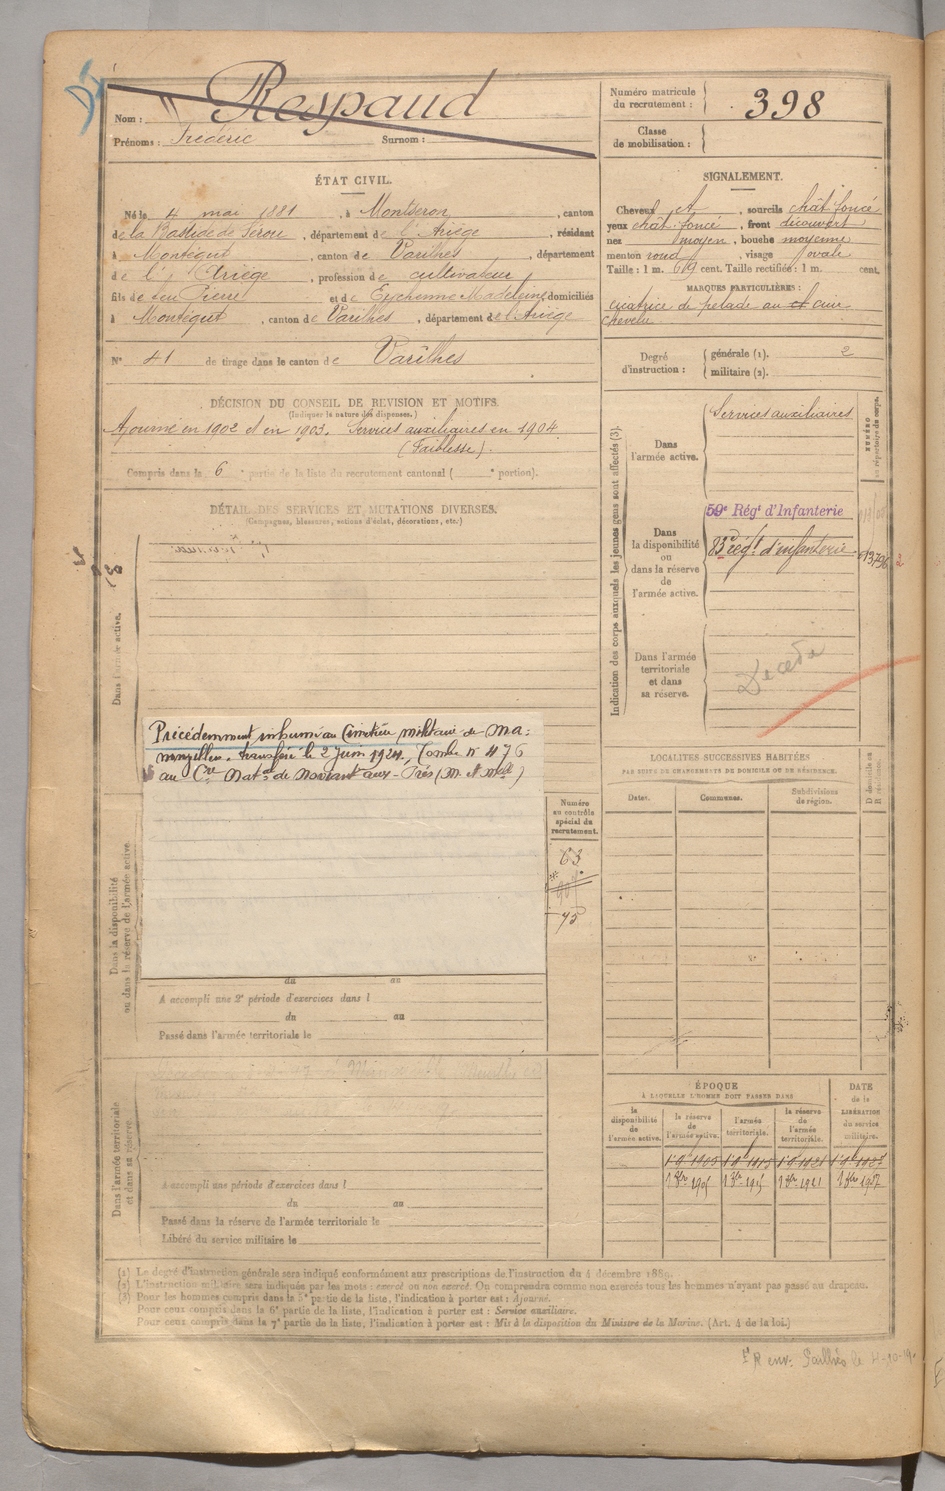 Nom : Respaud
Prénoms : Frédéric Surnom :
Numéro matricule
du recrutement : 398
Classe
de mobilisation :
ÉTAT CIVIL.
Né le 4 mai 1881, à Montseron, canton
de la Bastide de Sérou, département de l'Ariège, résidant
à Montégut, canton de Varilhes, département
de l'Ariège, profession de cultivateur
fils de feu Pierre et de Eychenne Madeleine, domiciliés
à Montégut, canton de Varilhes, département de l'Ariège
N° 41 de tirage dans le canton de Varilhes
SIGNALEMENT.
Cheveux et, sourcils chât foncé
yeux chât. foncé, front découvert
nez moyen, bouche moyenne
menton rond, visage ovale
Taille : 1 m. cent. Taille rectifiée : 1 m. cent.
MARQUES PARTICULIÈRES :
cicatrice de pelade au cuir
chevelu
Degré
d'instruction :
générale (1). 2
militaire (2).
DÉCISION DU CONSEIL DE REVISION ET MOTIFS.
(Indiquer la nature des dispenses.)
Ajourné en 1902 et en 1903. Services auxiliaires en 1904
(Faiblesse).
Compris dans la 6e partie de la liste du recrutement cantonal ( e portion).
DÉTAIL DES SERVICES ET MUTATIONS DIVERSES.
(Campagnes, blessures, actions d'éclat, décorations, etc.)
Dans l'armée active.
Précédemment inhumé au Cimetière militaire de Ma-
transféré le 2 Juin 1924, Tombe n° 476
au Cre Natal de Noviant aux-Prés (M. et Mlle)
Dans la disponibilité
ou dans la réserve de l'armée active.
Numéro
au contrôle
spécial du
recrutement.
63
75
du au
A accompli une 2e période d'exercices dans l
du au
Passé dans l'armée territoriale le
Dans l'armée territoriale
et dans sa réserve.
A accompli une période d'exercices dans l
du au
Passé dans la réserve de l'armée territoriale le
Libéré du service militaire le
Indication des corps auxquels les jeunes gens sont affectés (3).
NUMÉRO
au répertoire du corps.
Dans
l'armée active.
Services auxiliaires
Dans
la disponibilité
ou
dans la réserve
de
l'armée active.
59e Régt d'Infanterie
83e régt d'infanterie
Dans l'armée
territoriale
et dans
sa réserve.
Décédé
LOCALITÉS SUCCESSIVES HABITÉES
PAR SUITE DE CHANGEMENTS DE DOMICILE OU DE RÉSIDENCE.
Dates.
Communes.
Subdivisions
de région.
D domicile ou
R résidence.
ÉPOQUE
À LAQUELLE L'HOMME DOIT PASSER DANS
la
disponibilité
de
l'armée active.
la réserve
de
l'armée active.
l'armée
territoriale.
la réserve
de
l'armée
territoriale.
DATE
de la
LIBÉRATION
du service
militaire.
(1) Le degré d'instruction générale sera indiqué conformément aux prescriptions de l'instruction du 4 décembre 1889.
(2) L'instruction militaire sera indiquée par les mots : exercé ou non exercé. On comprendra comme non exercés tous les hommes n'ayant pas passé au drapeau.
(3) Pour les hommes compris dans la 5e partie de la liste, l'indication à porter est : Ajourné.
Pour ceux compris dans la 6e partie de la liste, l'indication à porter est : Service auxiliaire.
Pour ceux compris dans la 7e partie de la liste, l'indication à porter est : Mis à la disposition du Ministre de la Marine. (Art. 4 de la loi.)